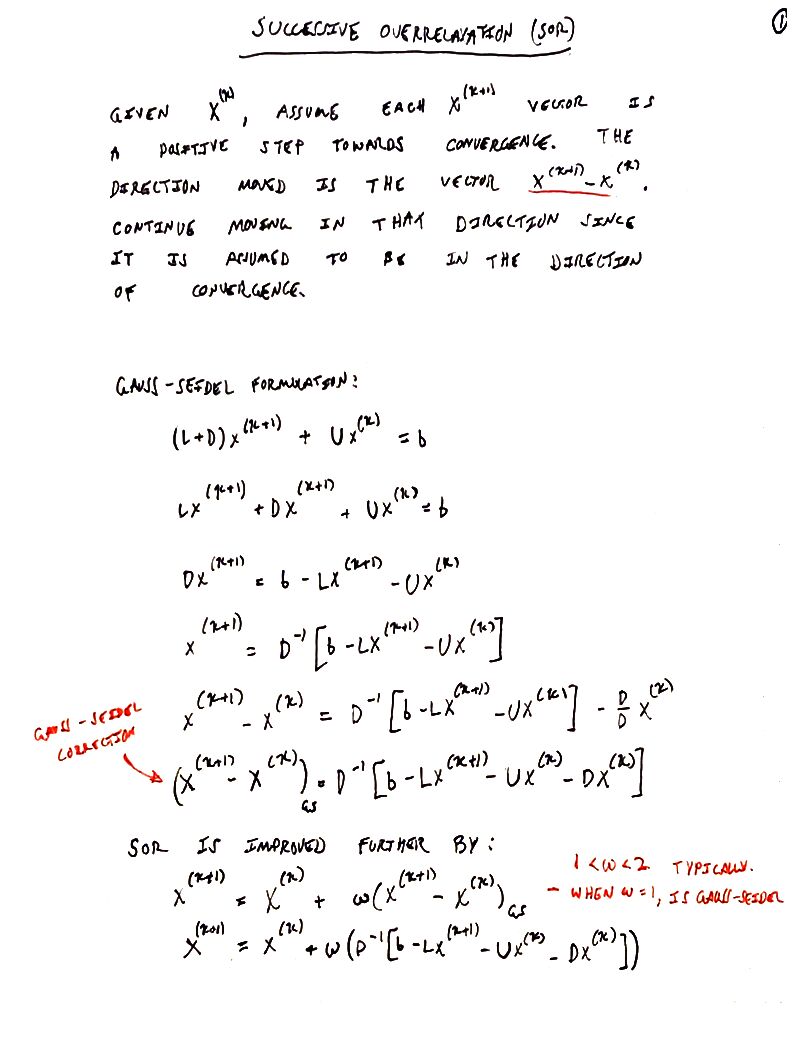 SUCCESSIVE OVERRELAXATION (SOR)
1
GIVEN X^(K), ASSUME EACH X^(K+1) VECTOR IS
A POSITIVE STEP TOWARDS CONVERGENCE. THE
DIRECTION MOVED IS THE VECTOR X^(K+1) - X^(K).
CONTINUE MOVING IN THAT DIRECTION SINCE
IT IS ASSUMED TO BE IN THE DIRECTION
OF CONVERGENCE.
GAUSS-SEIDEL FORMULATION:
(L+D)X^(K+1) + UX^(K) = b
LX^(K+1) + DX^(K+1) + UX^(K) = b
DX^(K+1) = b - LX^(K+1) - UX^(K)
X^(K+1) = D^-1 [b - LX^(K+1) - UX^(K)]
X^(K+1) - X^(K) = D^-1 [b - LX^(K+1) - UX^(K)] - D/D X^(K)
GAUSS-SEIDEL
CORRECTION
(X^(K+1) - X^(K))_GS = D^-1 [b - LX^(K+1) - UX^(K) - DX^(K)]
SOR IS IMPROVED FURTHER BY:
X^(K+1) = X^(K) + ω(X^(K+1) - X^(K))_GS
1 < ω < 2 TYPICALLY.
- WHEN ω = 1, IS GAUSS-SEIDEL
X^(K+1) = X^(K) + ω(D^-1[b - LX^(K+1) - UX^(K) - DX^(K)])